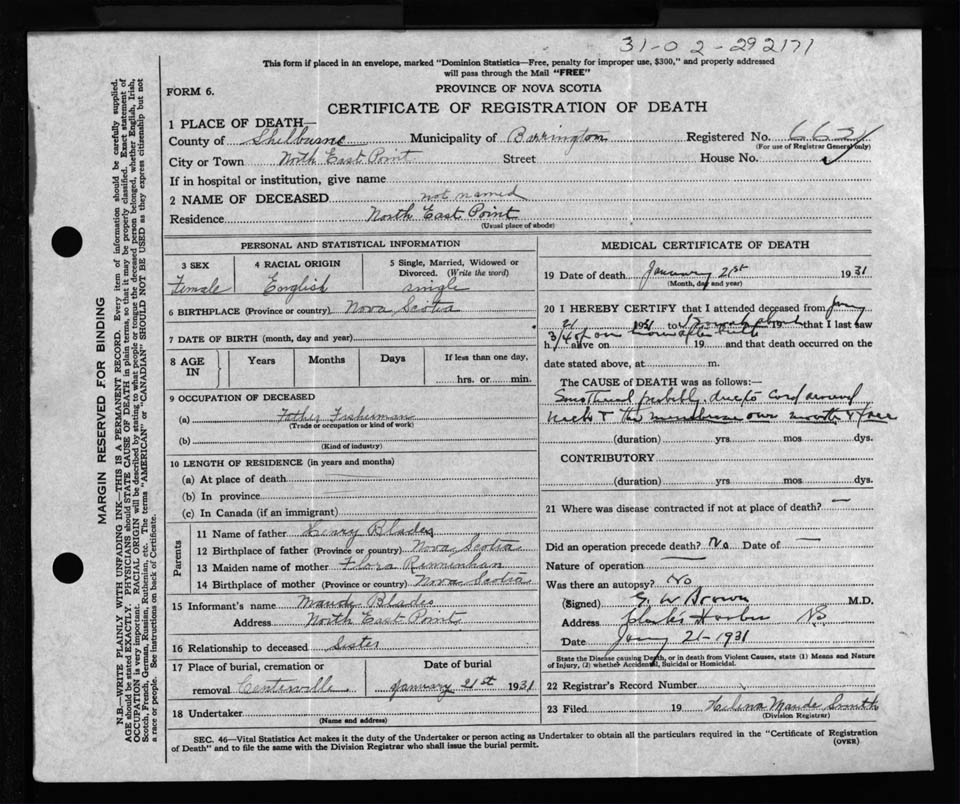 31-02-292171
This form if placed in an envelope, marked "Dominion Statistics—Free, penalty for improper use, $300," and properly addressed
will pass through the Mail "FREE"
FORM 6.
PROVINCE OF NOVA SCOTIA
CERTIFICATE OF REGISTRATION OF DEATH
1 PLACE OF DEATH—
County of Shelburne Municipality of Barrington Registered No. 662
(For use of Registrar General only)
City or Town North East Point Street House No.
If in hospital or institution, give name
2 NAME OF DECEASED not named
Residence North East Point
(Usual place of abode)
PERSONAL AND STATISTICAL INFORMATION
3 SEX
Female
4 RACIAL ORIGIN
English
5 Single, Married, Widowed or
Divorced. (Write the word)
single
6 BIRTHPLACE (Province or country) Nova Scotia
7 DATE OF BIRTH (month, day and year)
8 AGE
IN
Years Months Days
If less than one day,
hrs. or min.
9 OCCUPATION OF DECEASED
(a) Father Fisherman
(Trade or occupation or kind of work)
(b)
(Kind of industry)
10 LENGTH OF RESIDENCE (in years and months)
(a) At place of death
(b) In province
(c) In Canada (if an immigrant)
Parents
11 Name of father Henry Blades
12 Birthplace of father (Province or country) Nova Scotia
13 Maiden name of mother Flora
14 Birthplace of mother (Province or country) Nova Scotia
15 Informant's name Maude Blades
Address North East Point
16 Relationship to deceased Sister
17 Place of burial, cremation or
removal Centerville
Date of burial
January 21st 1931
18 Undertaker
(Name and address)
MEDICAL CERTIFICATE OF DEATH
19 Date of death January 21st 1931
(Month, day and year)
20 I HEREBY CERTIFY that I attended deceased from
21 1931 to 19 that I last saw
3/4 of an hour after birth
h alive on 19 and that death occurred on the
date stated above, at m.
The CAUSE of DEATH was as follows:—
Smothered probably due to cord around
neck & the membrane over mouth & face
(duration) yrs. mos dys.
CONTRIBUTORY
(duration) yrs. mos. dys.
21 Where was disease contracted if not at place of death? —
Did an operation precede death? No Date of —
Nature of operation —
Was there an autopsy? No
(Signed) G. W Brown M.D.
Address Clark's Harbor NS
Date Jany 21-1931
State the Disease causing Death, or in death from Violent Causes, state (1) Means and Nature
of Injury, (2) whether Accidental, Suicidal or Homicidal.
22 Registrar's Record Number
23 Filed 19 Helena Maude Smith
(Division Registrar)
SEC. 46—Vital Statistics Act makes it the duty of the Undertaker or person acting as Undertaker to obtain all the particulars required in the "Certificate of Registration
of Death" and to file the same with the Division Registrar who shall issue the burial permit.
(OVER)
MARGIN RESERVED FOR BINDING
N.B.—WRITE PLAINLY WITH UNFADING INK—THIS IS A PERMANENT RECORD. Every item of information should be carefully supplied.
AGE should be stated EXACTLY. PHYSICIANS should STATE CAUSE OF DEATH in plain terms, so that it may be properly classified. Exact statement of
OCCUPATION is very important. RACIAL ORIGIN will be described by stating to what people or tongue the deceased person belonged, whether English, Irish,
Scotch, French, German, Russian, Ruthenian, etc. The terms "AMERICAN" or "CANADIAN" SHOULD NOT BE USED as they express citizenship but not
a race or people. See instructions on back of Certificate.